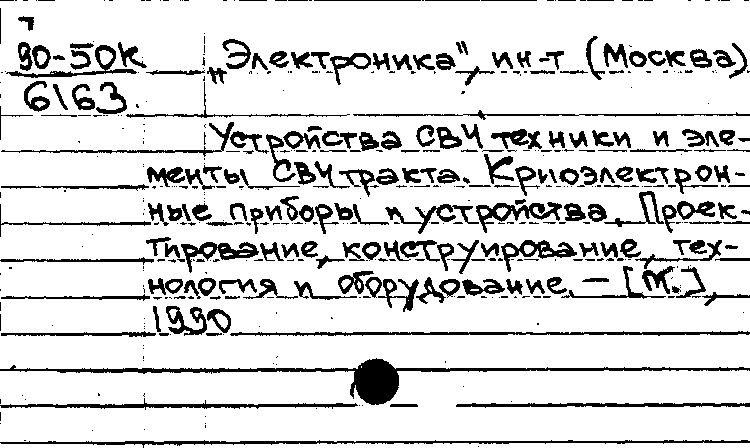 7
90-50к „Электроника", ин-т (Москва)
6163
Устройства СВЧ техники и эле-
менты СВЧ тракта. Криоэлектрон-
ные приборы и устройства. Проек-
тирование, конструирование, тех-
нология и оборудование. — [М.],
1990